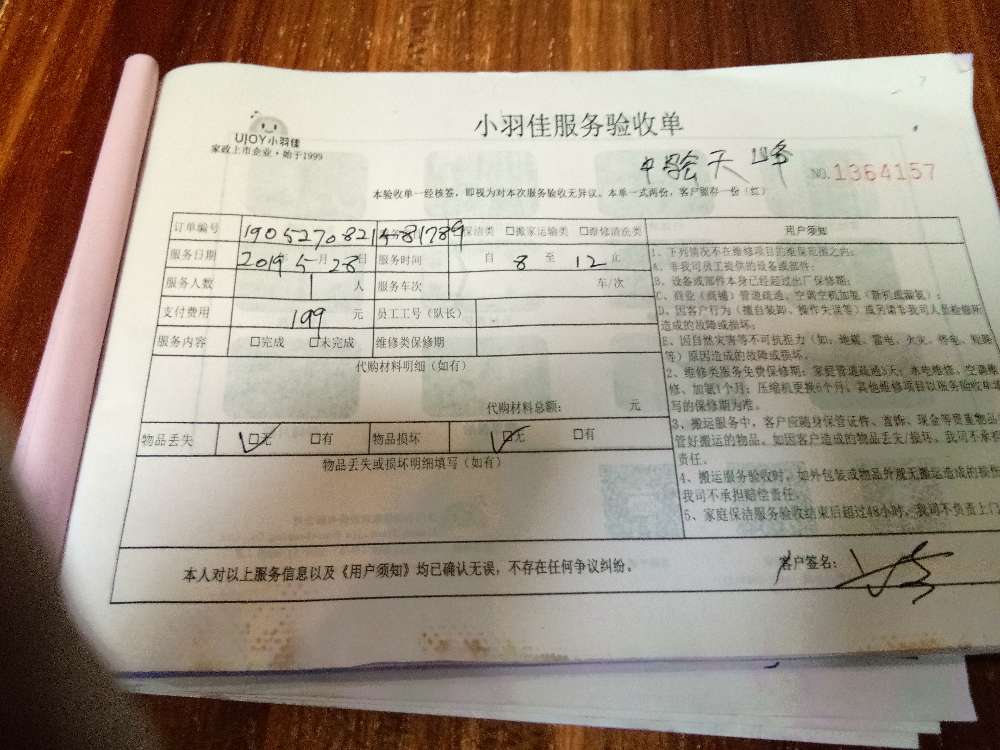 UJOY小羽佳
家政上市企业·始于1999
小羽佳服务验收单
NO.1364157
本验收单一经核签，即视为对本次服务验收无异议。本单一式两份，客户留存一份（红）
订单编号 保洁类 □搬家运输类 □维修清洗类
服务日期 2019年5月28日 服务时间 自 8 至 12 止
服务人数 1 人 服务车次 车/次
支付费用 199 元 员工工号（队长）
服务内容 □完成 □未完成 维修类保修期
代购材料明细（如有）
代购材料总额： 元
物品丢失 ☑无 □有 物品损坏 ☑无 □有
物品丢失或损坏明细填写（如有）
用户须知
1、下列情况不在维修项目的维保范围之内：
A、非我司员工提供的设备或部件；
B、设备或部件本身已经超过出厂保修期；
C、商业（商铺）管道疏通、空调空机加氟（新机或漏氟）；
D、因客户行为（擅自装卸、操作失误等）或另请非我司人员检修所
造成的故障或损坏；
E、因自然灾害等不可抗拒力（如：地震、雷电、火灾、
等）原因造成的故障或损坏。
2、维修类服务免费保修期：家庭管道疏通3天；水电维修、空调维
修、加氟1个月；压缩机更换6个月。其他维修项目以服务验收单
写的保修期为准。
3、搬运服务中，客户应随身保管证件、首饰、现金等贵重物品
管好搬运的物品。如因客户造成的物品丢失/损坏，我司不承担
责任。
4、搬运服务验收时，如外包装或物品外观无搬运造成的损伤
我司不承担赔偿责任。
5、家庭保洁服务验收结束后超过48小时，我司不负责上门
本人对以上服务信息以及《用户须知》均已确认无误，不存在任何争议纠纷。 客户签名：